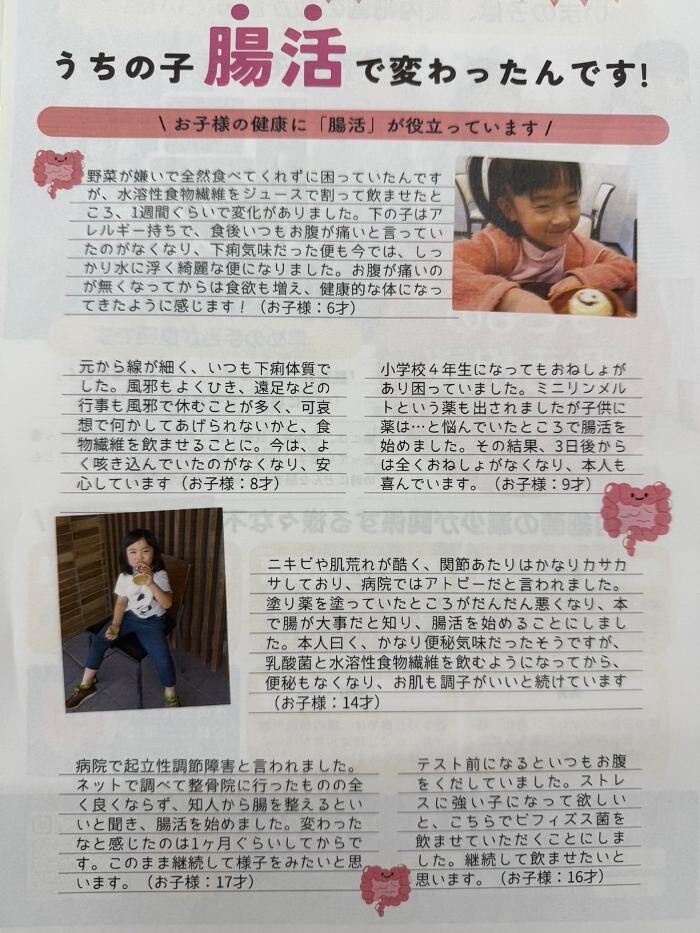 うちの子腸活で変わったんです!
\ お子様の健康に「腸活」が役立っています /
野菜が嫌いで全然食べてくれずに困っていたんです
が、水溶性食物繊維をジュースで割って飲ませたと
ころ、1週間ぐらいで変化がありました。下の子はア
レルギー持ちで、食後いつもお腹が痛いと言ってい
たのがなくなり、下痢気味だった便も今では、しっ
かり水に浮く綺麗な便になりました。お腹が痛いの
が無くなってからは食欲も増え、健康的な体になっ
てきたように感じます！（お子様：6才）
元から線が細く、いつも下痢体質で
した。風邪もよくひき、遠足などの
行事も風邪で休むことが多く、可哀
想で何かしてあげられないかと、食
物繊維を飲ませることに。今は、よ
く咳き込んでいたのがなくなり、安
心しています（お子様：8才）
小学校４年生になってもおねしょが
あり困っていました。ミニリンメル
トという薬も出されましたが子供に
薬は…と悩んでいたところで腸活を
始めました。その結果、3日後から
は全くおねしょがなくなり、本人も
喜んでいます。（お子様：9才）
ニキビや肌荒れが酷く、関節あたりはかなりカサカ
サしており、病院ではアトピーだと言われました。
塗り薬を塗っていたところがだんだん悪くなり、本
で腸が大事だと知り、腸活を始めることにしまし
た。本人曰く、かなり便秘気味だったそうですが、
乳酸菌と水溶性食物繊維を飲むようになってから、
便秘もなくなり、お肌も調子がいいと続けています
（お子様：14才）
病院で起立性調節障害と言われました。
ネットで調べて整骨院に行ったものの全
く良くならず、知人から腸を整えるとい
いと聞き、腸活を始めました。変わった
なと感じたのは1ヶ月ぐらいしてからで
す。このまま継続して様子をみたいと思
います。（お子様：17才）
テスト前になるといつもお腹
をくだしていました。ストレ
スに強い子になって欲しい
と、こちらでビフィズス菌を
飲ませていただくことにしま
した。継続して飲ませたいと
思います。（お子様：16才）